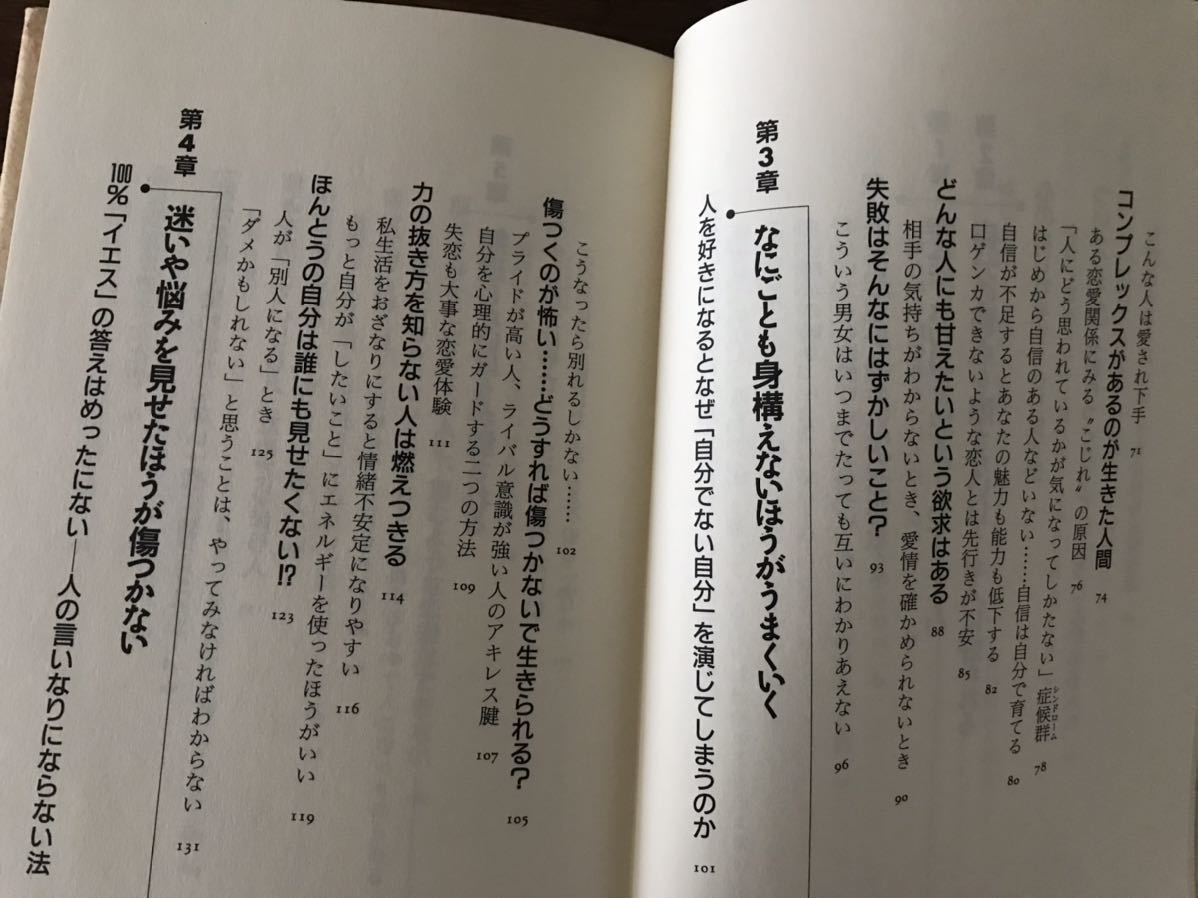 こんな人は愛され下手 71
コンプレックスがあるのが生きた人間 74
ある恋愛関係にみる〝こじれ〟の原因 76
「人にどう思われているかが気になってしかたない」症候群 シンドローム 78
はじめから自信のある人などいない……自信は自分で育てる 80
自信が不足するとあなたの魅力も能力も低下する 82
口ゲンカできないような恋人とは先行きが不安 85
どんな人にも甘えたいという欲求はある 88
相手の気持ちがわからないとき、愛情を確かめられないとき 90
失敗はそんなにはずかしいこと? 93
こういう男女はいつまでたっても互いにわかりあえない 96
第3章 なにごとも身構えないほうがうまくいく
人を好きになるとなぜ「自分でない自分」を演じてしまうのか 101
こうなったら別れるしかない…… 102
傷つくのが怖い……どうすれば傷つかないで生きられる? 105
プライドが高い人、ライバル意識が強い人のアキレス腱 107
自分を心理的にガードする二つの方法 109
失恋も大事な恋愛体験 111
力の抜き方を知らない人は燃えつきる 114
私生活をおざなりにすると情緒不安定になりやすい 116
もっと自分が「したいこと」にエネルギーを使ったほうがいい 119
ほんとうの自分は誰にも見せたくない!? 123
人が「別人になる」とき 125
「ダメかもしれない」と思うことは、やってみなければわからない 131
第4章 迷いや悩みを見せたほうが傷つかない
100%「イエス」の答えはめったにない――人の言いなりにならない法